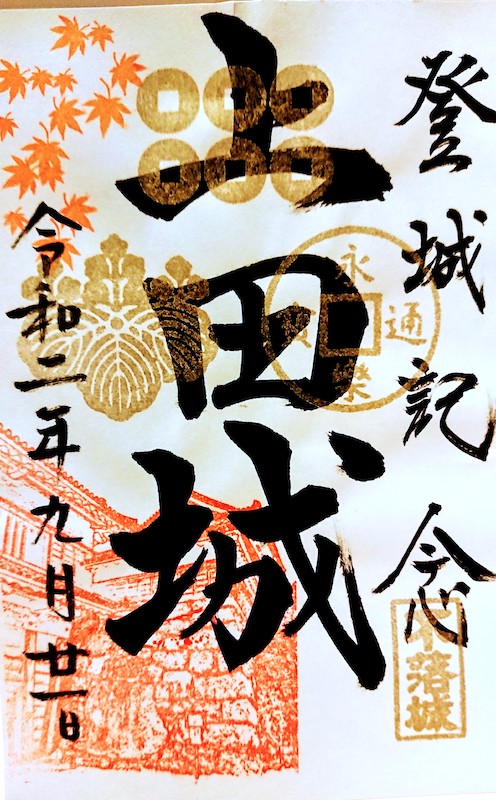 登城記念
上田城
令和二年九月廿一日
永樂通寳
不落城